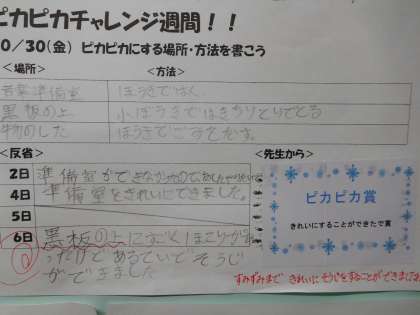 ピカピカチャレンジ週間！！
0／30(金) ピカピカにする場所・方法を書こう
＜場所＞ ＜方法＞
音楽準備室 ほうきではく
黒板の上 小ぼうきではき
物のした ほうきで
＜反省＞ ＜先生から＞
2日 準備室ができなかったので
4日 準備室をきれいにできました。
5日
6日 黒板の上にすごくほこりが
ったけど そうじ
ができました
ピカピカ賞
きれいにすることができたで賞
すみずみまで きれいに そうじをすることができました